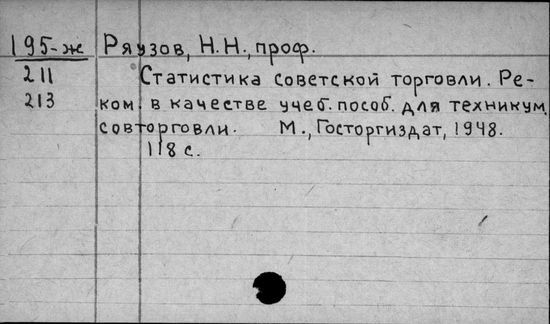 195-ж Ряузов, Н.Н., проф.
211 Статистика советской торговли. Ре-
213 ком. в качестве учеб. пособ. для техникум.
совторговли. М., Госторгиздат, 1948.
118 с.